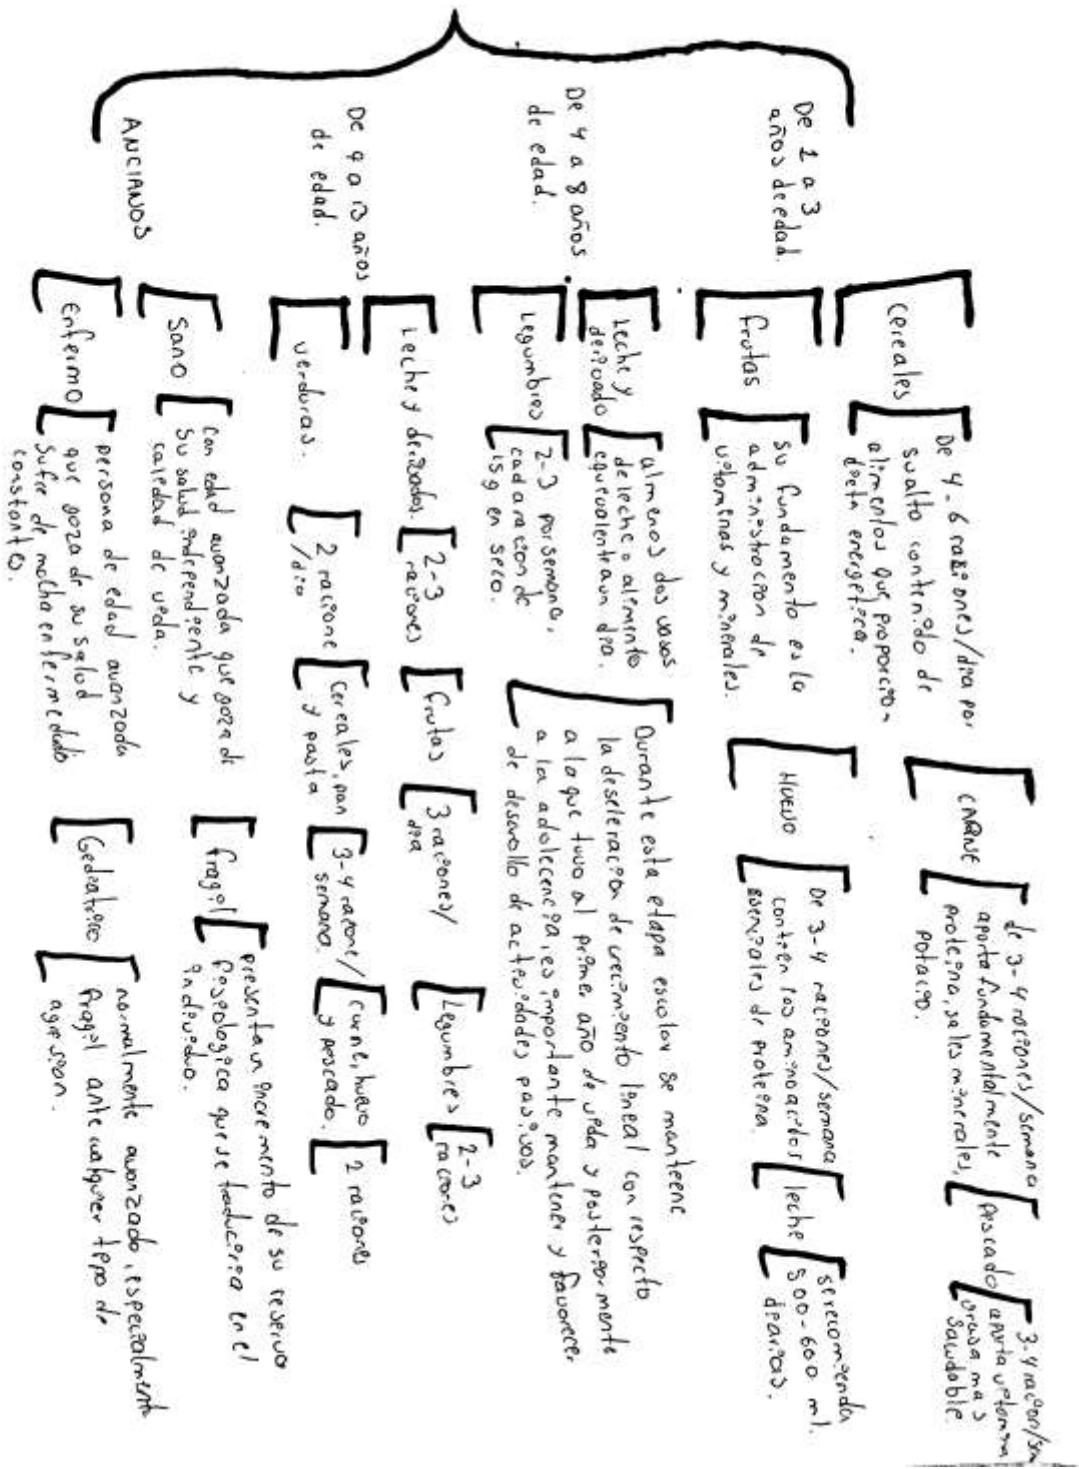 De 1 a 3
años de edad.
cereales
De 4-6 raziones/dia por
su alto contenido de
alimentos que proporcion
dieta energetica.
CARNE
de 3-4 raciones/semana
aporta fundamentalmente
proteina, sales minerales,
potacio.
Pescado
3-4 racion/sem
aporta vitamina
grasa mas
Saludable
frutas
Su fundamento es la
administracion de
vitaminas y minerales.
HUEVO
De 3-4 raciones/semana
contien los aminoacidos
esenciales de proteina
leche
se recomienda
500-600 ml.
diarios.
De 4 a 8 años
de edad.
Leche y
derivado
almenos dos vasos
de leche o alimento
equivalente a un dia.
Legumbres
2-3 por semana,
cada racion de
15g en seco.
Durante esta etapa escolar se manteene
la deseleracion de crecimiento lineal con respecto
a la que tuvo al primer año de vida y posteriormente
a la adolecencia, es importante mantener y favorecer
de desarollo de actividades pasivas.
De 9 a 13 años
de edad.
Leche y derivados.
2-3
raciones
frutas
3 raciones/
dia
Legumbres
2-3
raciones
verduras.
2 racione
/dia
cereales, pan
y pasta
3-4 racione/
semana.
carne, huevo
y pescado.
2 raciones
ANCIANOS
Sano
con edad avanzada que goza de
su salud independiente y
caledad de vida.
fragil
presenta un incremento de su reserva
fisiologica que se traduciria en el
individuo.
Enfermo
persona de edad avanzada
que goza de su salud
sufre de mucha enfermedad
constantes.
Gediatrico
normalmente avanzado, especialmente
fragil ante cualquier tipo de
agresion.